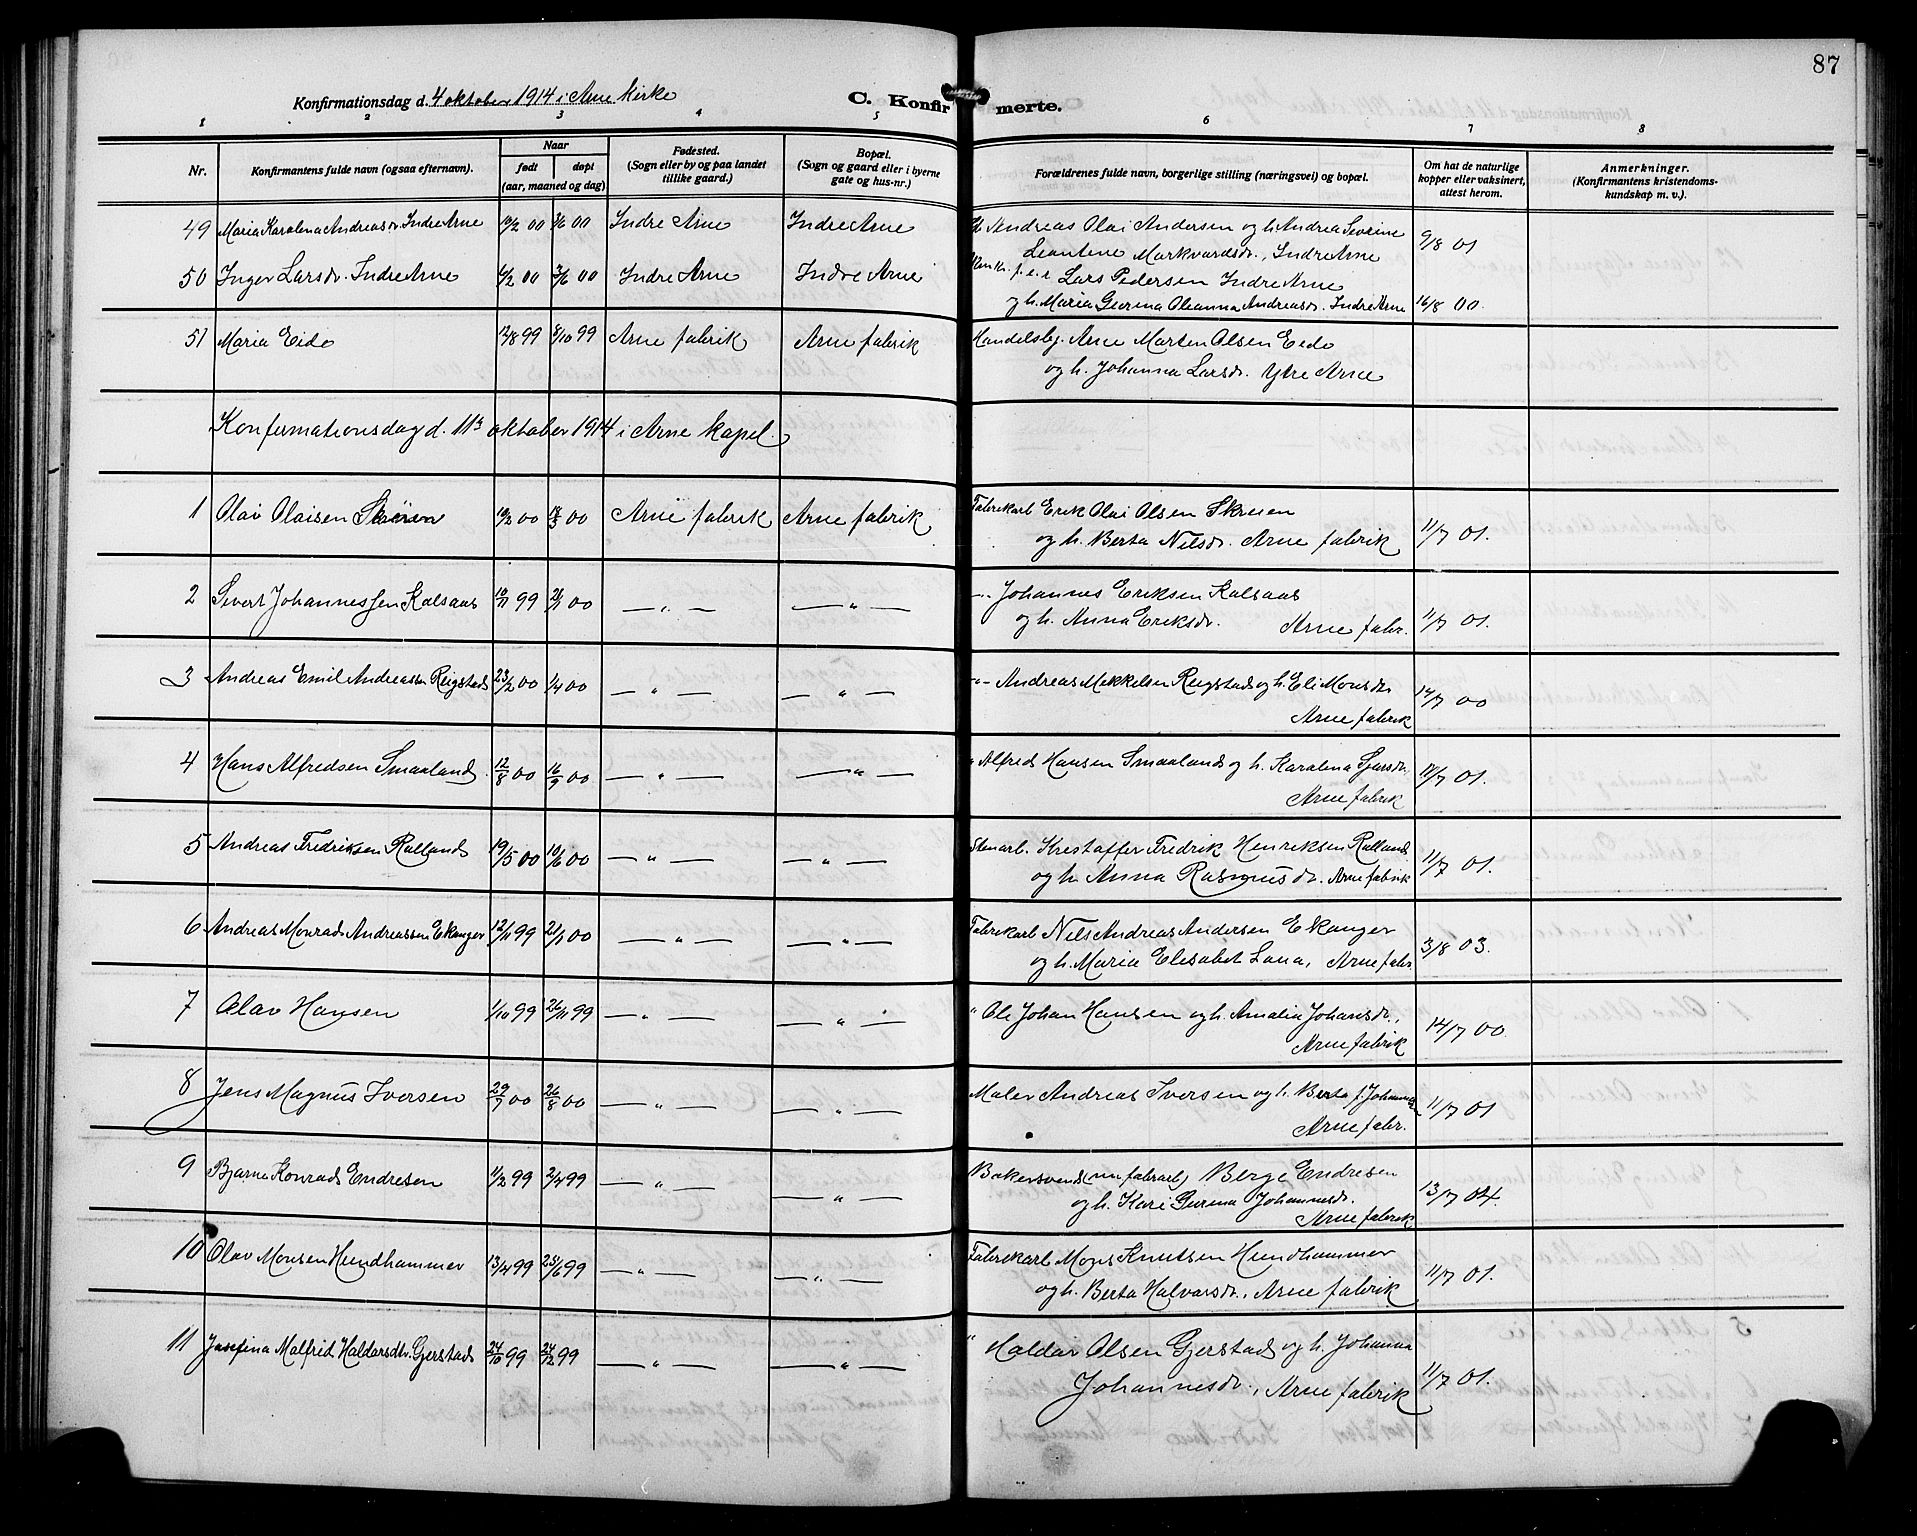 87
Konfirmationsdag d. 4 oktober 1914 i Arne kirke
C. Konfirmerte.
1 2 3 4 5 6 7 8
Nr. Konfirmantens fulde navn (ogsaa efternavn). Naar født døpt (aar, maaned og dag) Fødested. (Sogn eller by og paa landet tillike gaard.) Bopæl. (Sogn og gaard eller i byerne gate og hus-nr.) Forældrenes fulde navn, borgerlige stilling (næringsvei) og bopæl. Om hat de naturlige kopper eller vaksinert, attest herom. Anmerkninger. (Konfirmantens kristendoms-kundskap m. v.).
49 Maria Karolena Andreasdr. Indre Arne 00 3/6 00 Indre Arne Indre Arne Andreas Olai Andersen og h. Andrea Severine 9/8 01
Leantine Markvardsdr., Indre Arne
50 Inger Larsdr. Indre Arne 00 3/6 00 Indre Arne Indre Arne Lars Pedersen Indre Arne
og h. Maria Gurina Oleanna Andreasdr. Indre Arne 16/8 00.
51 Maria Eide 99 8/10 99 Arne fabrik Arne fabrik Handelsbj. Arne Marten Olsen Eide
og h. Johanna Larsdr. Ytre Arne
Konfirmationsdag d. 11 oktober 1914 i Arne kapel.
1 Olai Olaisen 00 00 Arne fabrik Arne fabrik Fabrikarb Erik Olai Olsen Skreien
og h. Berta Nilsdr. Arne fabrik 11/7 01.
2 Sivert Johannessen Kalsaas 10/11 99 00 — " — — " — - " - Johannes Eriksen Kalsaas
og h. Anna Eriksdr. Arne fabr. 11/7 01.
3 Andreas Emil Andreassen Reigstad 23/2 00 1/4 00 — " — — " — - " - Andreas Mikkelsen Reigstad og h. Eli Monsdr. 14/7 00
Arne fabrik
4 Hans Alfredsen Smaaland 12/8 00 16/9 00 — " — — " — " Alfred Hansen Smaaland og h. Karolina 01.
Arne fabrik
5 Andreas Fredriksen Ralland 19/5 00 10/6 00 — " — — " — Stenarb. Kristoffer Fredrik Henriksen Ralland
og h. Anna Rasmusdr. Arne fabrik 11/7 01.
6 Andreas Monrad Andreassen Ekanger 12/11 99 2/1 00 — " — — " — Fabrikarb Nils Andreas Andersen Ekanger
og h. Maria Elisabet Lana, Arne fabr. 3/8 03.
7 Olav Hansen 1/10 99 26/11 99 — " — — " — " Ole Johan Hansen og h. Amalia Johansdr., 14/7 00.
Arne fabrik
8 Jens Magnus Iversen 29/7 00 26/8 00 — " — — " — Maler Andreas Iversen og h. Berta f. 11/7 01
Arne fabr.
9 Bjarne Konrad Endresen 11/2 99 2/4 99 — " — — " — Bakersvend (nu fabrarb) Berge Endresen
og h. Kari Gurina Johannesdr. 13/7 04.
Arne fabrik
10 Olav Monsen Hundhammer 13/4 99 99 — " — — " — Fabrikarb Mons Knutsen Hundhammer
og h. Berta Halvarsdr., Arne fabrik 11/7 01.
11 Josefina Malfrid Haldorsdtr. Gjerstad 24/10 99 24/12 99 — " — — " — " Haldor Olsen Gjerstad og h. Johanna
Johannesdr., Arne fabrik 11/7 01.